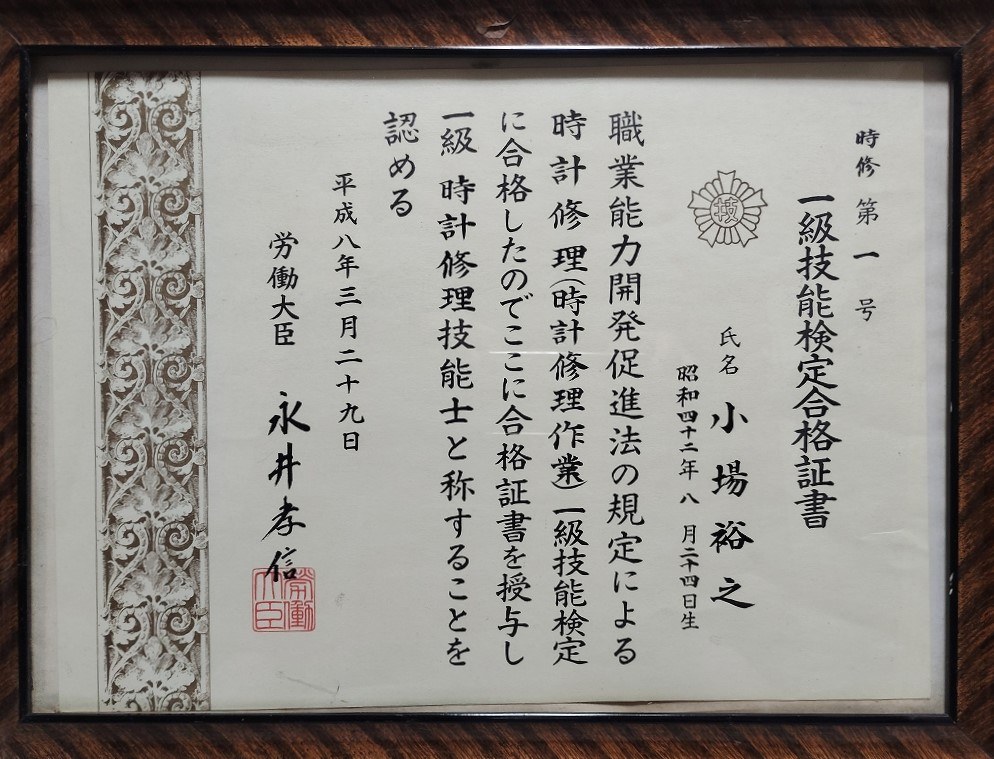 時修 第一号
一級技能検定合格証書
技
氏名 小場裕之
昭和四十二年八月二十四日生
職業能力開発促進法の規定による
時計修理(時計修理作業)一級技能検定
に合格したのでここに合格証書を授与し
一級 時計修理技能士と称することを
認める
平成八年三月二十九日
労働大臣 永井孝信
労働大臣